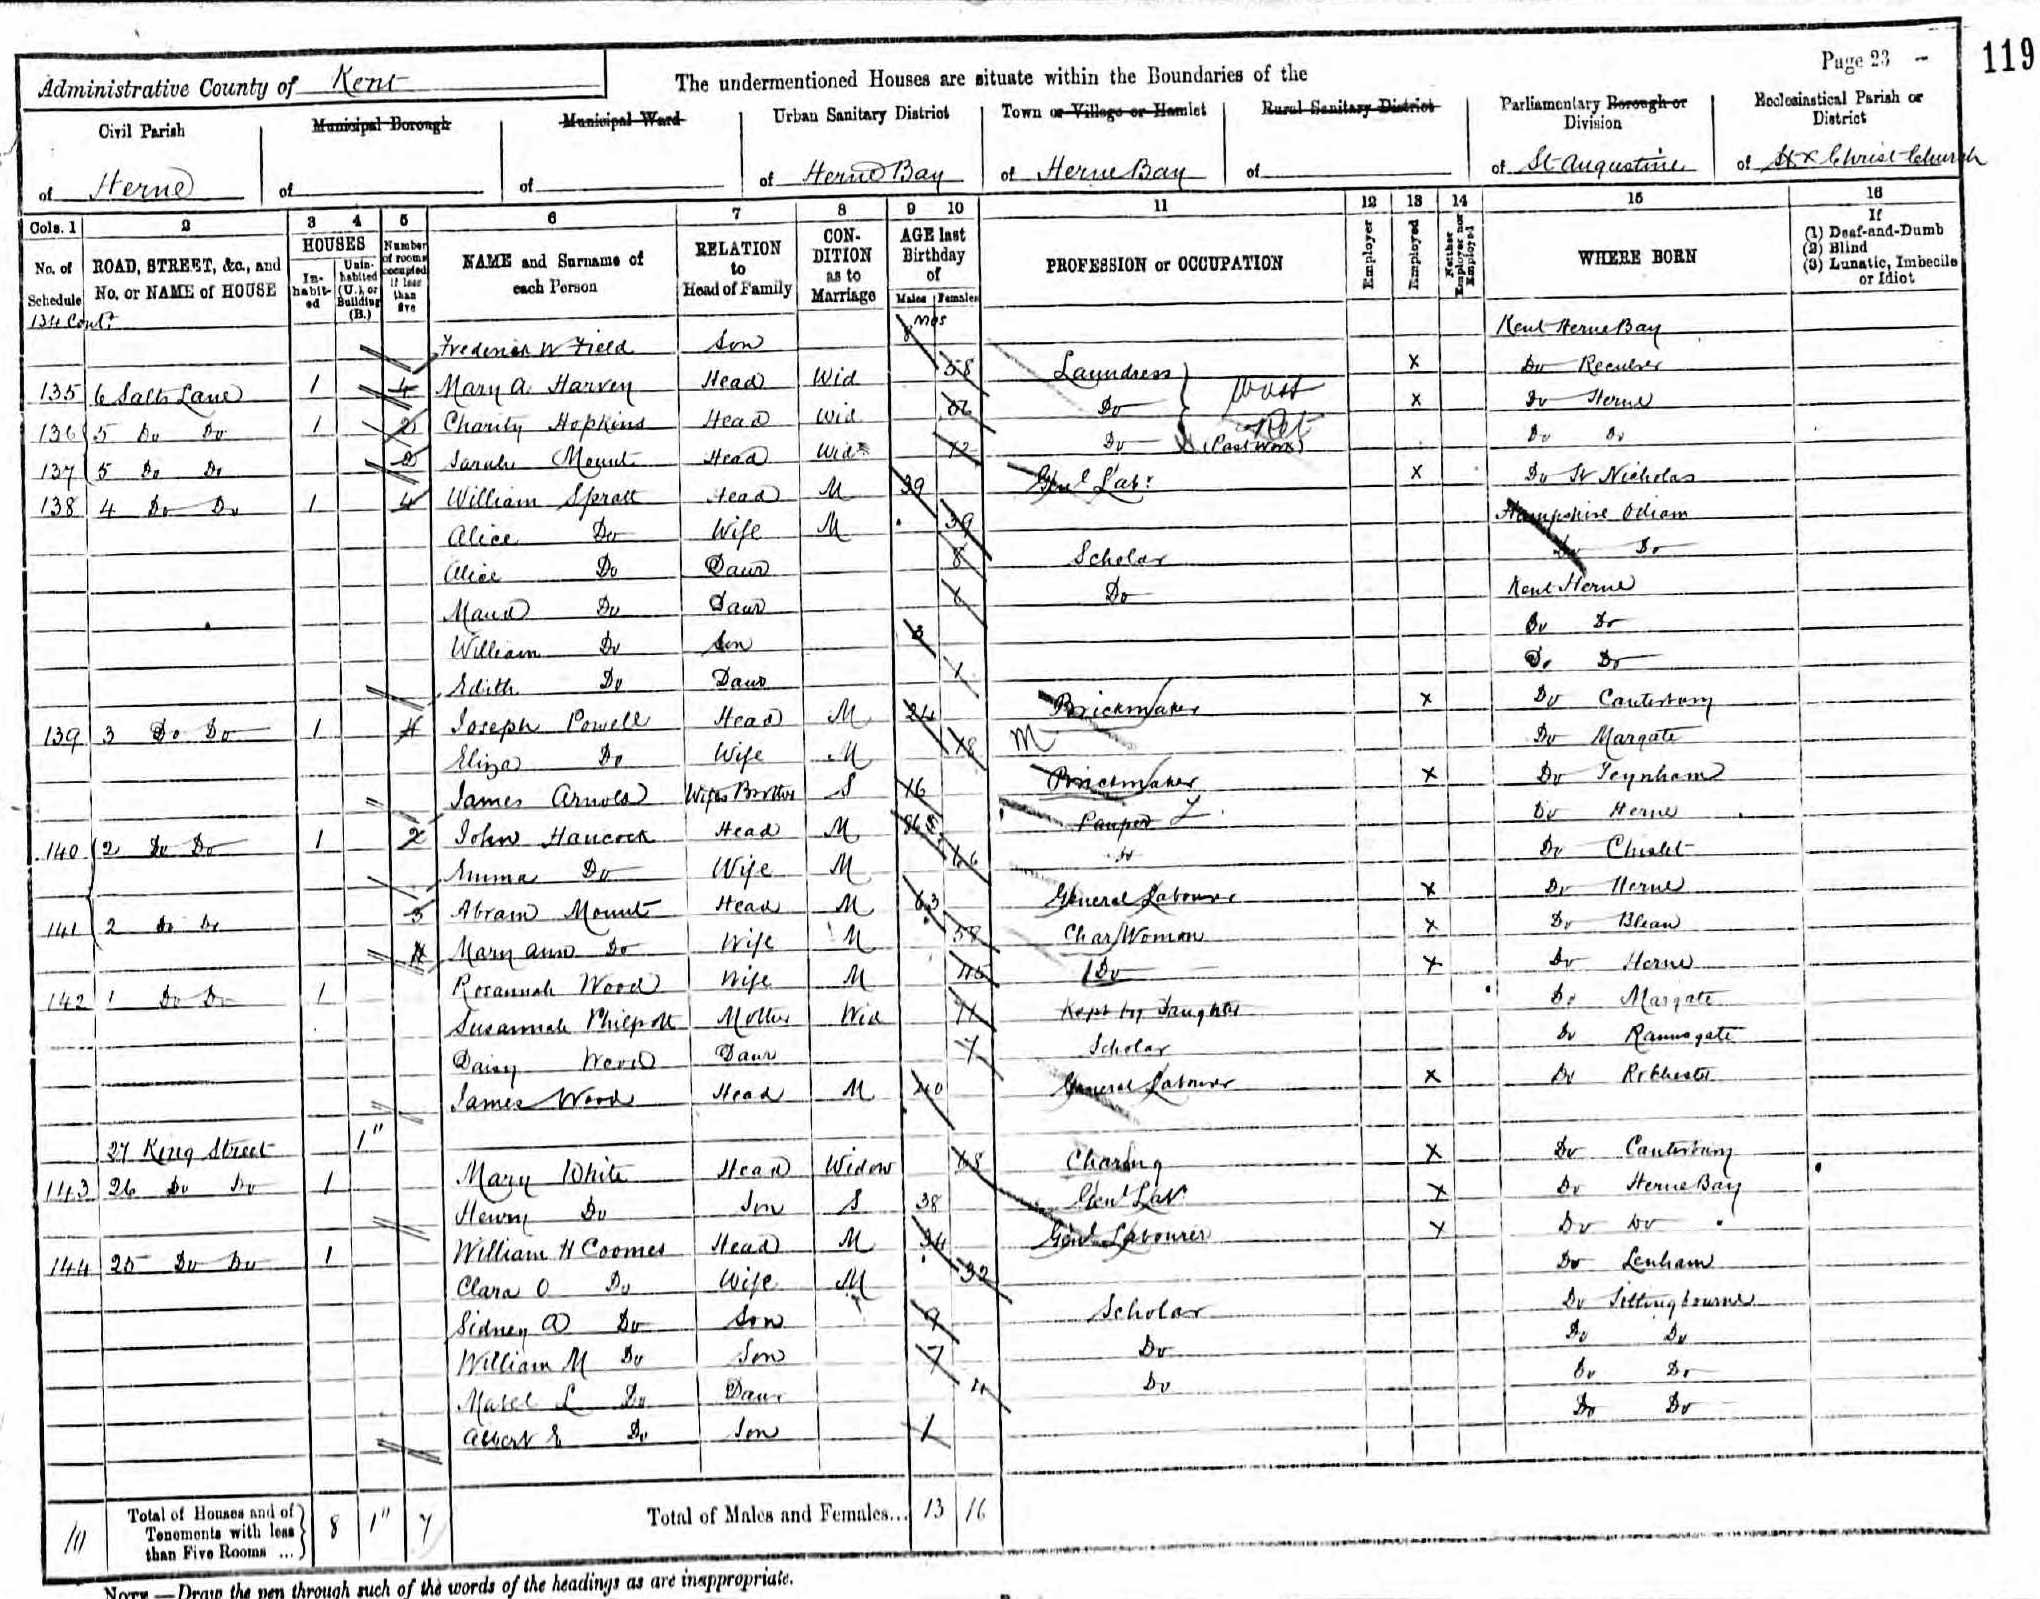 Page 23
119
Administrative County of Kent
The undermentioned Houses are situate within the Boundaries of the
Civil Parish
of Herne
Municipal Borough
of
Municipal Ward
of
Urban Sanitary District
of Herne Bay
Town or Village or Hamlet
of Herne Bay
Rural Sanitary District
of
Parliamentary Borough or Division
of St Augustine
Ecclesiastical Parish or District
of Christ Church
Cols. 1 2 3 4 5 6 7 8 9 10 11 12 13 14 15 16
No. of Schedule
ROAD, STREET, &c., and No. or NAME of HOUSE
HOUSES
Inhabited
Uninhabited (U.), or Building (B.)
Number of rooms occupied if less than five
NAME and Surname of each Person
RELATION to Head of Family
CONDITION as to Marriage
AGE last Birthday of
Males Females
PROFESSION or OCCUPATION
Employer
Employed
Neither Employer nor Employed
WHERE BORN
If
(1) Deaf-and-Dumb
(2) Blind
(3) Lunatic, Imbecile or Idiot
134 Cont.d Frederick W Field Son mos Kent Herne Bay
135 6 Salts Lane 1 4 Mary A. Harvey Head Wid 58 Laundress X Do Reculver
136 5 Do Do 1 2 Charity Hopkins Head Wid Do X Do Herne
137 5 Do Do 2 Sarah Mount Head Wid 72 Do (Past Work) Do Do
138 4 Do Do 1 4 William Spratt Head M 39 Genl Labr X Do St Nicholas
Alice Do Wife M 39 Hampshire Odiam
Alice Do Daur 8 Scholar Do Do
Maud Do Daur 6 Do Kent Herne
William Do Son 3 Do Do
Edith Do Daur 1 Do Do
139 3 Do Do 1 4 Joseph Powell Head M 24 Brickmaker X Do Canterbury
Eliza Do Wife M 18 M Do Margate
James Arnold Wifes Brother S 16 Brickmaker X Do Teynham
140 2 Do Do 1 2 John Hancock Head M Pauper Do Herne
Emma Do Wife M 66 Do Do Chislet
141 2 Do Do 3 Abram Mount Head M 63 General Labourer X Do Herne
Mary Ann Do Wife M 58 Char Woman X Do Blean
142 1 Do Do 1 4 Rosannah Wood Wife M 45 Do X Do Herne
Susannah Philpott Mother Wid 71 Kept by Daughter Do Margate
Daisy Wood Daur 7 Scholar Do Ramsgate
James Wood Head M 40 General Labourer X Do Rochester
27 King Street 1"
143 26 Do Do 1 Mary White Head Widow 68 Charing X Do Canterbury
Henry Do Son S 38 Genl Labr X Do Herne Bay
144 25 Do Do 1 William H Coomes Head M 34 Genl Labourer X Do Do
Clara O Do Wife M 32 Do Lenham
Sidney A Do Son 9 Scholar Do Sittingbourne
William M Do Son 7 Do Do Do
Mabel L Do Daur 4 Do Do Do
Albert E Do Son 1 Do Do
10 Total of Houses and of Tenements with less than Five Rooms ... 8 1" 7 Total of Males and Females... 13 16
NOTE.—Draw the pen through such of the words of the headings as are inappropriate.